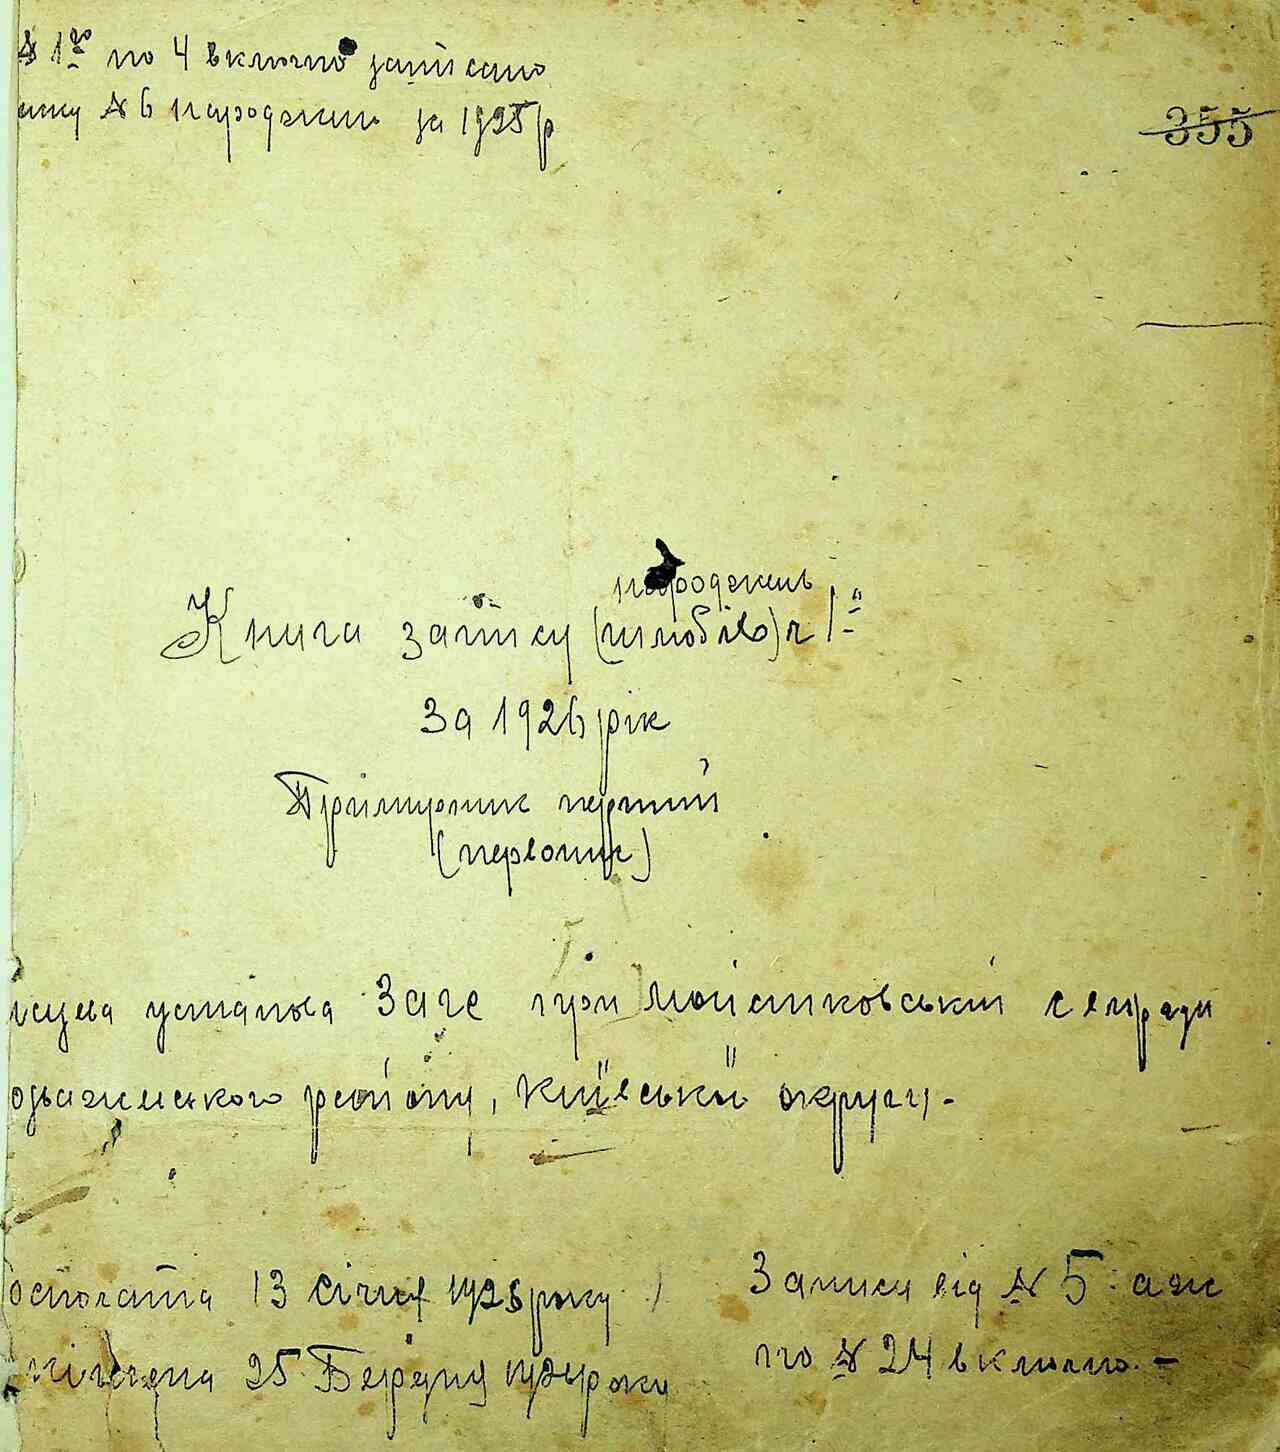 № 1го по 4 включно записано
книгу № 6 народжень за 1925 р
355
народжень
Книга запису (шлюбів) ч 1а
За 1926 рік
Примірник перший
(первопис)
установа Загс при Мостиковській сельради
району, Київської округи.-
Розпочата 13 січня 1926 року
Закінчена 25 Березня року
Записи від № 5 аж
по № 24 включно.-